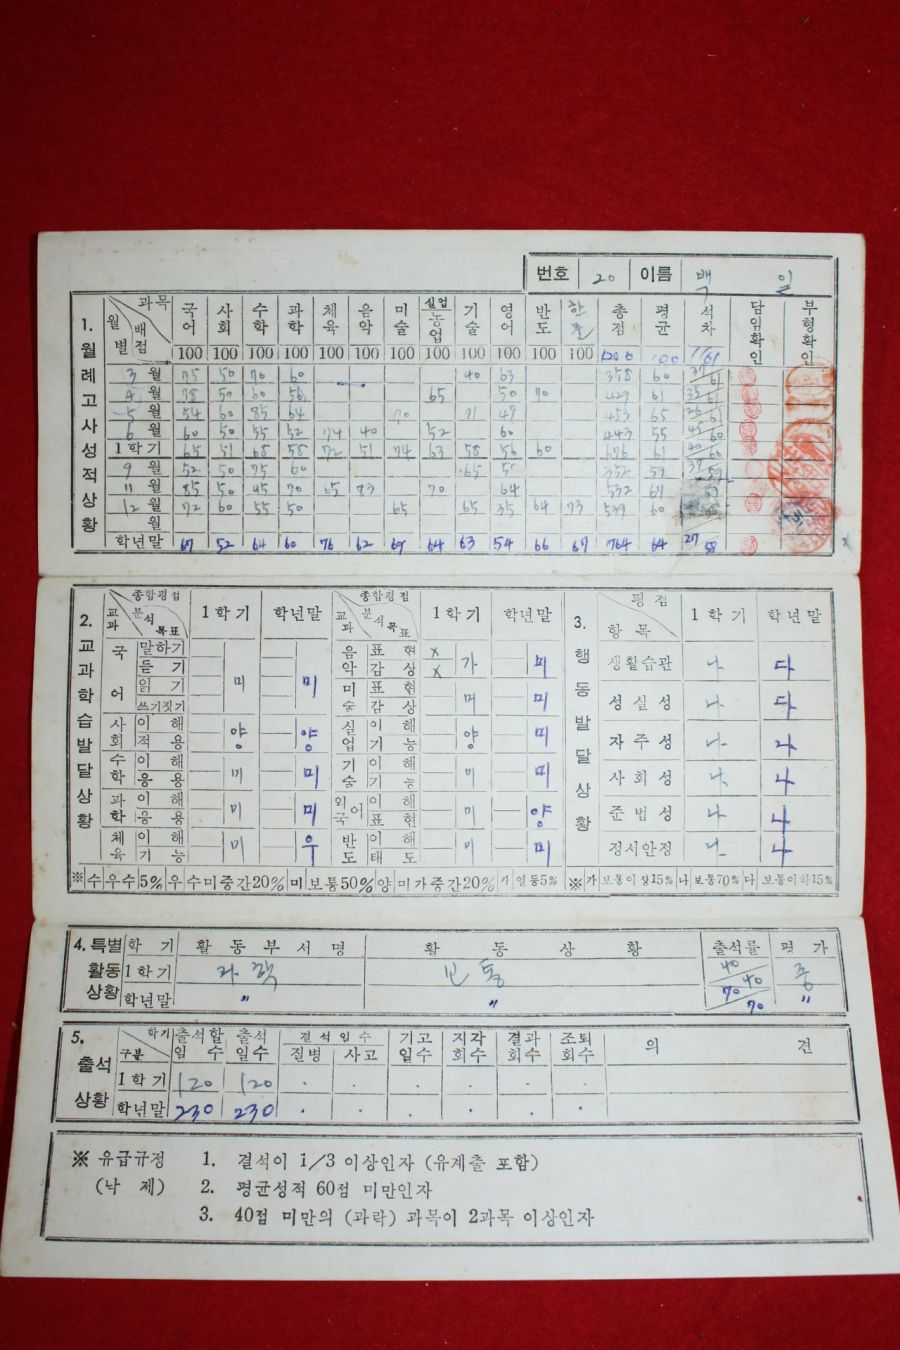 번호 20 이름 백 일
1. 월례고사성적상황
과목 국어 사회 수학 과학 체육 음악 미술 실업 농업 기술 영어 반도 한문 총점 평균 석차 담임확인 부형확인
월별 배점 100 100 100 100 100 100 100 100 100 100 100 100 1200 100 /61
3 월 75 50 70 60 40 63 358 60 37/61
4 월 78 50 60 56 65 50 70 429 61 35/61
5 월 54 60 85 64 70 71 49 453 65 26/61
6 월 60 50 55 52 74 40 52 60 443 55 45/60
1학기 65 51 68 58 72 51 74 63 58 56 60 676 61 40/60
9 월 52 50 75 60 65 352 59 37/59
11 월 85 50 45 70 65 83 70 64 532 67
12 월 72 60 55 50 65 65 35 64 73 539 60
월
학년말 67 52 64 60 76 62 69 64 63 54 66 67 764 64 27/58
2. 교과학습발달상황
종합평점 분석목표 교과 1학기 학년말 종합평점 분석목표 교과 1학기 학년말
국어 말하기 듣기 읽기 쓰기짓기 미 미
음악 표현 감상 x x 가 미
미술 표현 감상 미 미
사회 이해 적용 양 양 실업 이해 기능 양 미
수학 이해 응용 미 미 기술 이해 기능 미 미
과학 이해 응용 미 미 외국어 이해 표현 미 양
체육 이해 기능 미 우 반도 이해 태도 미 미
※ 수 우수5% 우 수미중간20% 미 보통50% 양 미가중간20% 가 열등5%
3. 행동발달상황
평점 항목 1학기 학년말
생활습관 나 다
성실성 나 다
자주성 나 나
사회성 나 나
준법성 나 나
정서안정 나 나
※ 가 보통이상15% 나 보통70% 다 보통이하15%
4. 특별활동상황 학기 활동부서명 활동상황 출석률 평가
1학기 보통 40/40 중
학년말 〃 〃 70/70 〃
5. 출석상황 학기 구분 출석할일수 출석일수 결석일수 질병 사고 기고일수 지각회수 결과회수 조퇴회수 의견
1학기 120 120 · · · · · ·
학년말 230 230 · · · · · ·
※ 유급규정 1. 결석이 1/3 이상인자 (유계출 포함)
(낙 제) 2. 평균성적 60점 미만인자
3. 40점 미만의 (과락) 과목이 2과목 이상인자